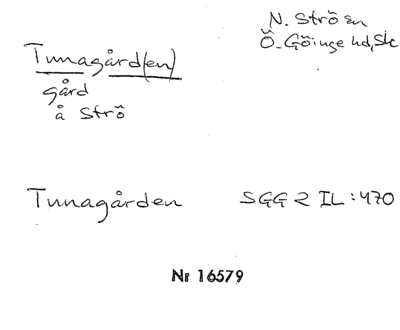 N. Strö sn
Ö. Göinge hd, Sk
Tunagård(en)
gård
å Strö
Tunagården SGG 2 IL:470
Nr 16579